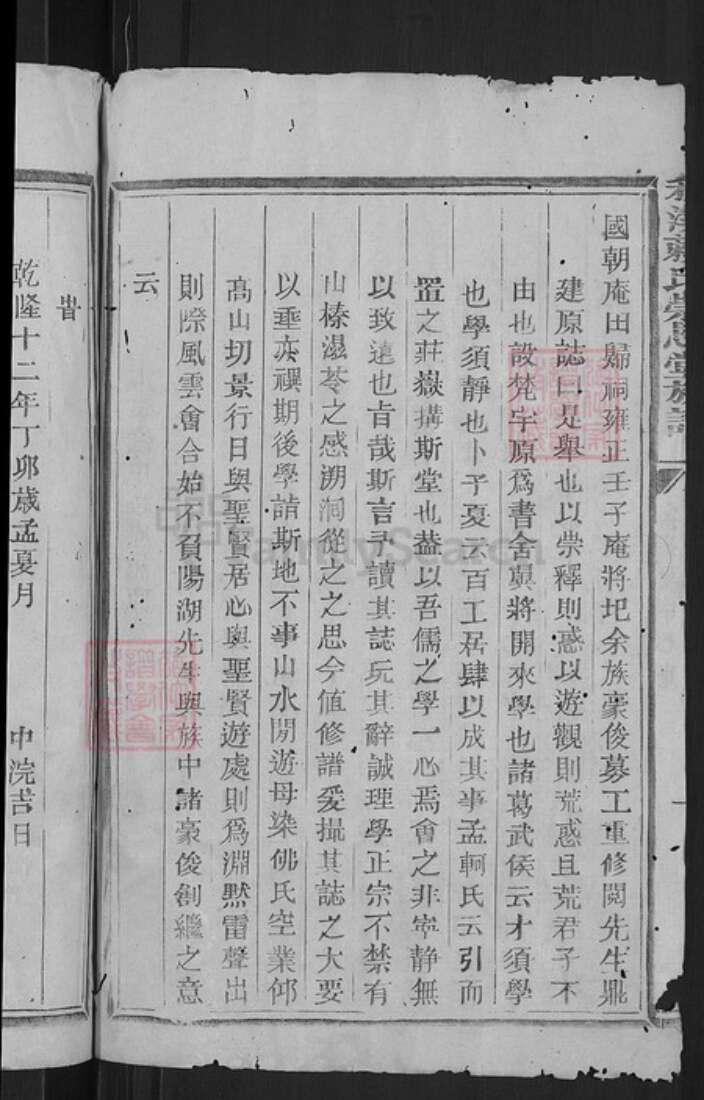 國朝庵田歸祠雍正壬子庵將圮余族豪俊募工重修閱先生鼎
建原誌曰是舉也以崇釋則惑以遊觀則荒惑且荒君子不
由也設梵宇原爲書舍冀將開來學也諸葛武侯云才須學
也學須靜也卜子夏云百工居肆以成其事孟軻氏云引而
置之莊嶽搆斯堂也葢以吾儒之學一心焉會之非寧静無
以致遠也旨哉斯言予讀其誌玩其辭誠理學正宗不禁有
山榛濕苓之感溯洄從之之思今值修譜爰撮其誌之大要
以垂示禩期後學詣斯地不事山水閒遊毋染佛氏空業仰
髙山切景行日與聖賢居心與聖賢遊處則爲淵黙雷聲出
則際風雲會合始不負陽湖先生與族中諸豪俊創繼之意
云
旹
乾隆十二年丁卯歲孟夏月 中浣吉日
氏崇恩堂族譜
FamilySearch